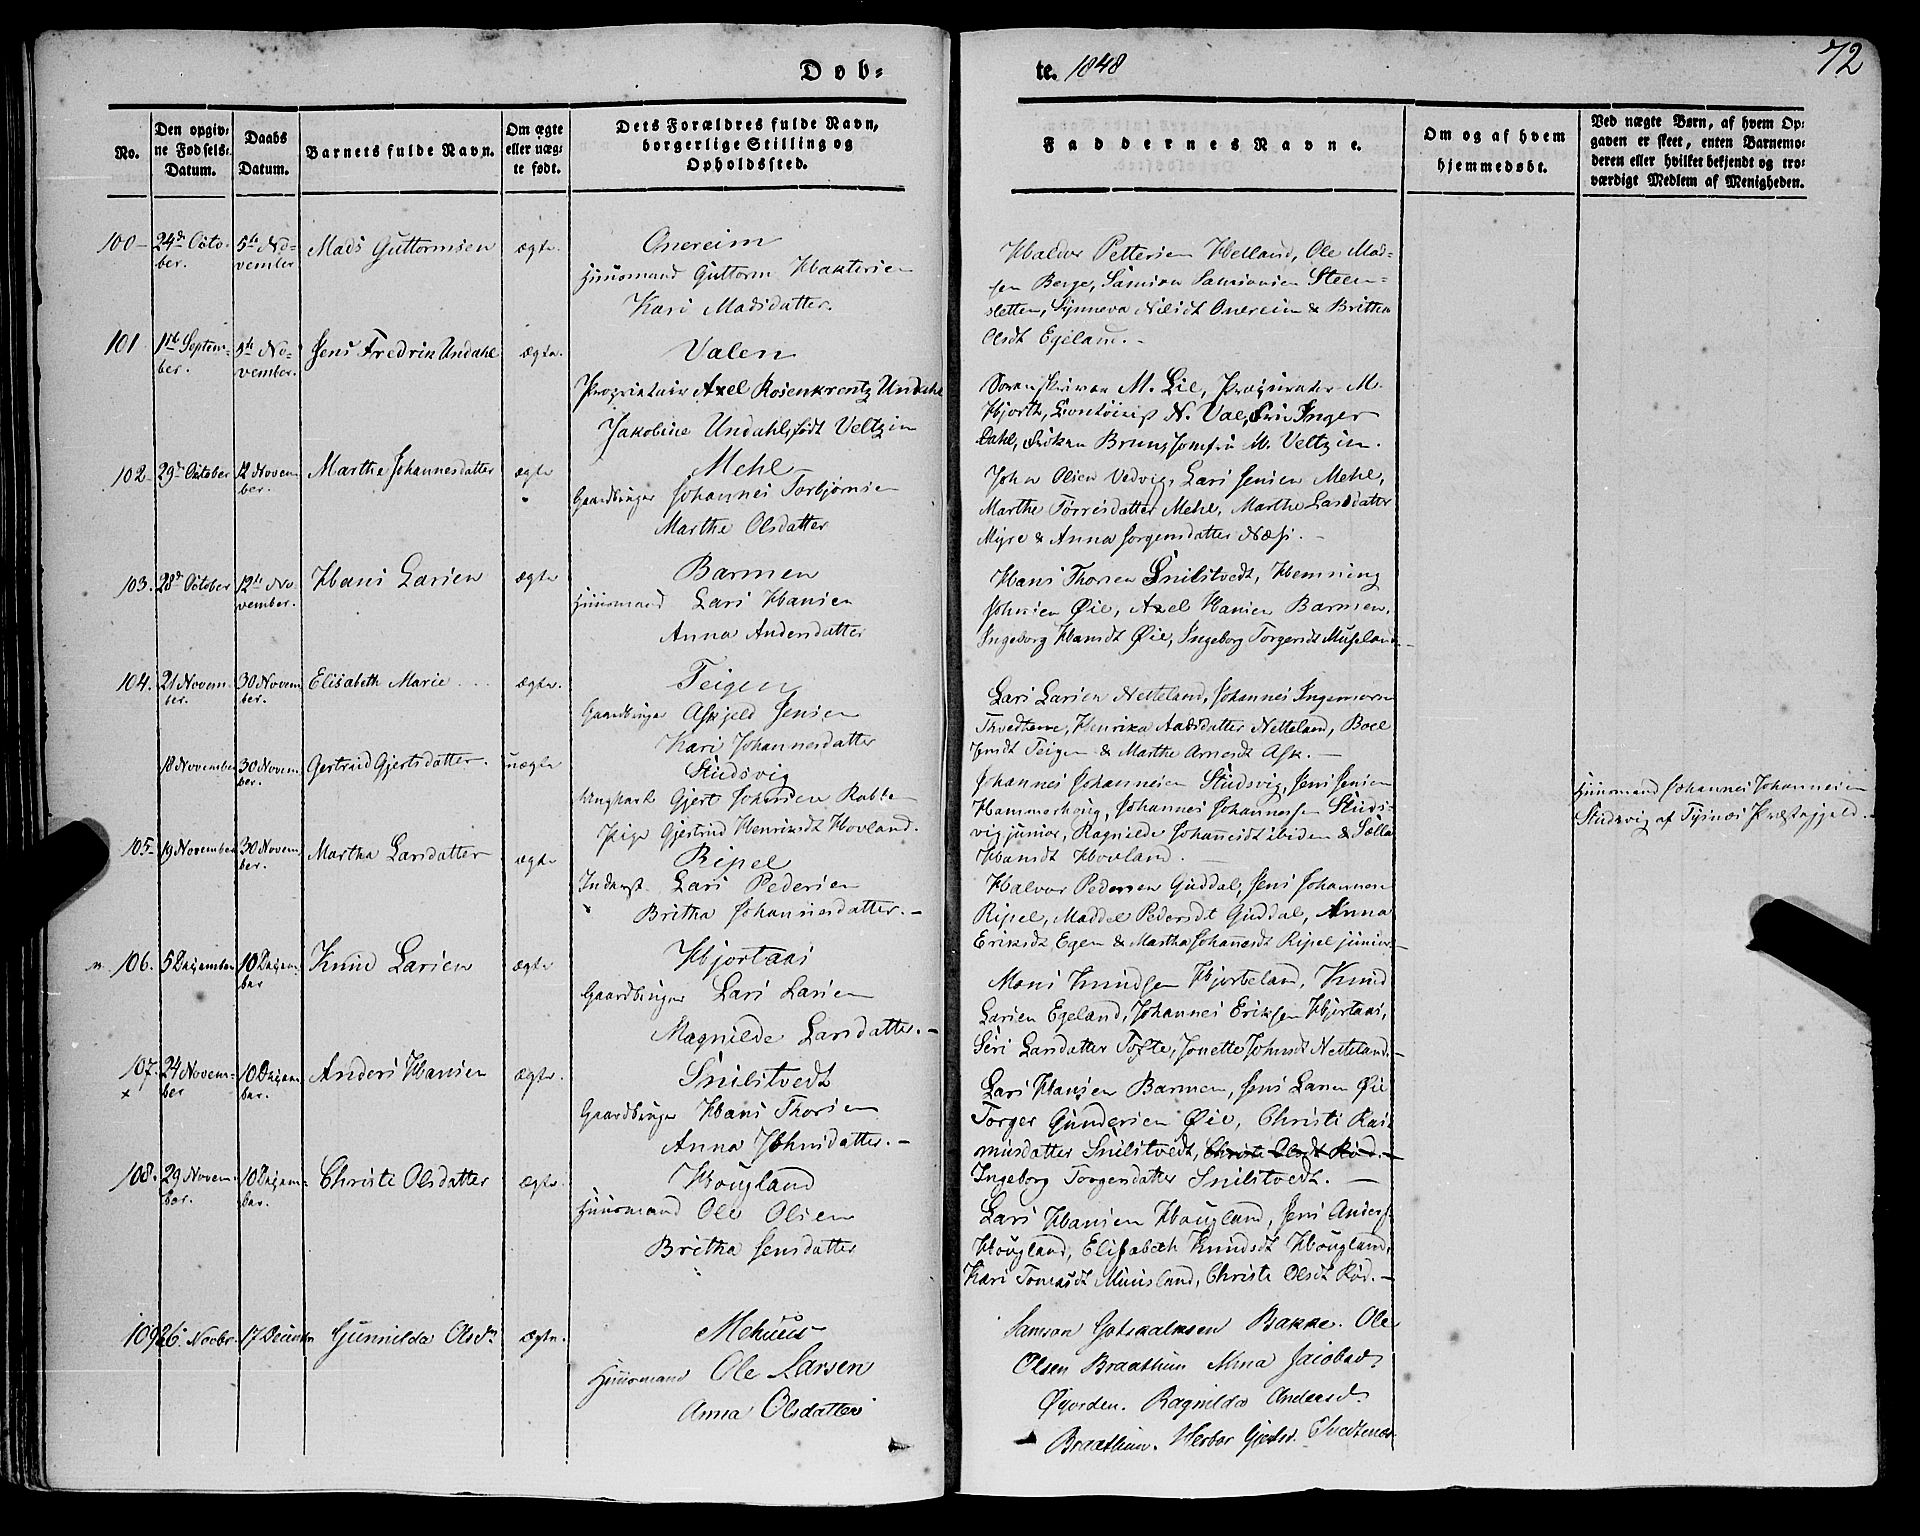 Døb-
te. 1848
72
No.
Den opgiv-
ne Fødsels-
Datum.
Daabs
Datum.
Barnets fulde Navn.
Om ægte
eller uæg-
te født.
Dets Forældres fulde Navn,
borgerlige Stilling og
Opholdssted.
Faddernes Navne.
Om og af hvem
hjemmedøbt.
Ved uægte Børn, af hvem Op-
gaven er skeet, enten Barnemo-
deren eller hvilket bekjendt og tro-
værdigt Medlem af Menigheden.
100- 24de Octo- 5te No- Mads Guttormsen ægte. Onereim
ber. vember
Huusmand Guttorm Haktorsen
Kari Madsdatter.
Haldor Pettersen Helland, Ole Mad-
sen Berge, Samson Samsonsen Steen-
sletten, Synneva Nilsdt Onereim & Britha
Olsdt Egeland.-
101 1ste Septem- 5te No- Jens Fredrik Undahl ægte. Valen
ber. vember.
Proprietair Axel Rosenkrentz Undahl
Jakobine Undahl, født Veltzin
Sorenskriver M. Lie, Procurator M.
Hjorth, N. Vae, Inger
Dahl, Bruun, Jomfru M. Veltzin.
102- 29de October 12 Novem Marthe Johannesdatter ægte Mehl
ber.
Gaardbruger Johannes Torbjørnsen
Marthe Olsdatter
John Olsen Vedvig, Lars Jensen Mehl,
Marthe Torrisdatter Mehl, Marthe Larsdatter
Myre & Anna Jorgensdatter Næss.-
103. 28de October 12te No- Hans Larsen ægte Barmen
vember.
Huusmand Lars Hansen
Anna Andersdatter
Hans Thorsen Snilstvedt, Hemning
Johnsen Øie, Axel Hansen Barmen,
Ingeborg Hansdt Øie, Ingeborg Torgersdt Musland-
104. 21 Novem- 30 Novem Elisabeth Marie ægte. Teigen
ber. ber.
Gaardbruger Askjeld Jensen
Kari Johannesdatter
Lars Larsen Netteland, Johannes Ingemorsen
Thvedtene, Henrika Aadsdatter Netteland, Boel
Jensdt Teigen & Marthe Arnesdt Ask.-
18 November 30 Novem Gertruid Gjertsdatter. uægte Studsvig
ber.
Ungkarl Gjert Johnsen Rabben
Pige Gjertrud Henriksdt Hovland.
Johannes Johannesen Studsvig, Jens Jensen
Hammerhoug, Johannes Johannessen Studs-
vig junior, Ragnilde Johannesdt ibidem & Sølle
Hansdt Hovland.-
Huusmand Johannes Johannesen
Studsvig af Tysnes Præstegjeld.
105- 19 November 30 Novem Martha Larsdatter ægte Ripel
ber.
Inderst. Lars Pedersen
Britha Johannesdatter.-
Halvor Pedersen Guddal, Jens Johannesen
Ripel, Maddel Pedersdt Guddal, Anna
Eriksdt Egen & Martha Johannesdt Ripel junior-
106. 5 December 10 Decem Knud Larsen ægte Hjortaas
ber
Gaardbruger Lars Larsen
Magnilde Larsdatter.-
Mons Knudsen Hjorteland, Knud
Larsen Egeland, Johannes Eriksen Hjortaas,
Siri Larsdatter Tofte, Jonette Johnsdt Netteland.-
107. 24 Novem- 10 Decem Anders Hansen ægte. Snilstvedt
x ber ber.
Gaardbruger Hans Thorsen
Anna Johnsdatter.-
Lars Hansen Barmen, Jens Larsen Øie
Torger Gundersen Øie, Christi Ras-
musdatter Snilstvedt, Christi Olsdt Rød.-
Ingeborg Torgersdatter Snilstvedt.-
108. 29 Novem- 10 Decem- Christi Olsdatter ægte. Hougland
ber. ber.
Huusmand Ole Olsen
Britha Jensdatter
Lars Hansen Hougland, Jens Anders
Hougland, Elisabeth Knudsdt Hougland,
Kari Tomasdt Musland, Christi Olsdt Rød.-
109 26 Novbr. 17 December Gunnilda Olsdr ægte. Mehuus
Huusmand Ole Larsen
Anna Olsdatter
Samson Gotskalksen Bakke. Ole
Olsen Braathun Anna Jacobsdr
Øyjorden. Ragnilda Andersdr
Braathun. Herbor Gjertsdr Thvedtenes